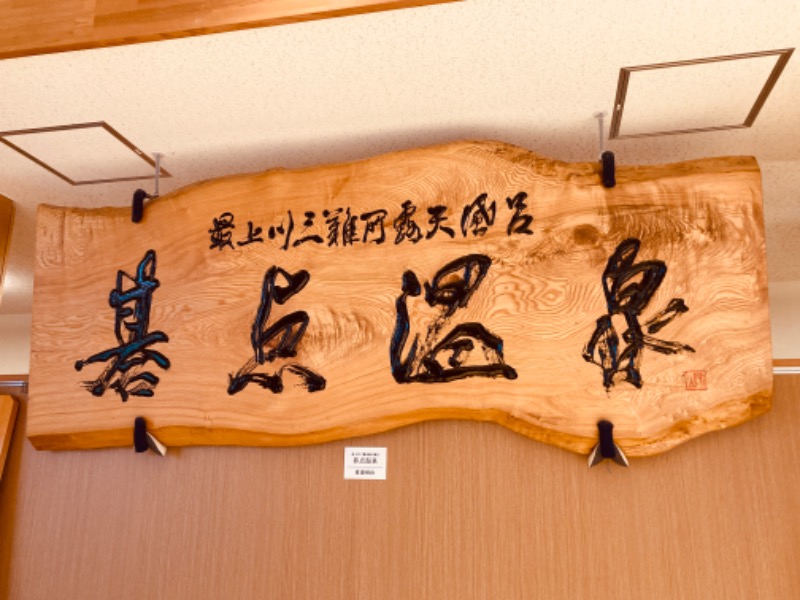 最上川三難所露天風呂
碁点温泉
碁点温泉